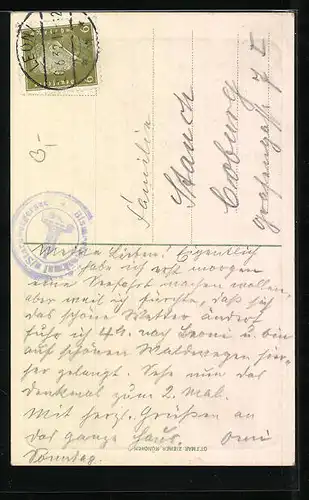 Familie
Stauch
Coburg
Grafengasse 7 I
3,-
LEONI
Meine Lieben! Eigentlich
habe ich erst morgen
eine Seefahrt machen wollen,
aber weil ich fürchte, daß sich
das schöne Wetter ändert
fuhr ich 4h. nach Leoni u. bin
auf schönen Waldwegen hier-
her gelangt. Sehe nun das
Denkmal zum 2. Mal.
Mit herzl. Grüßen an
das ganze Haus. Omi
Sonntag.
OTTMAR ZIEHER MÜNCHEN